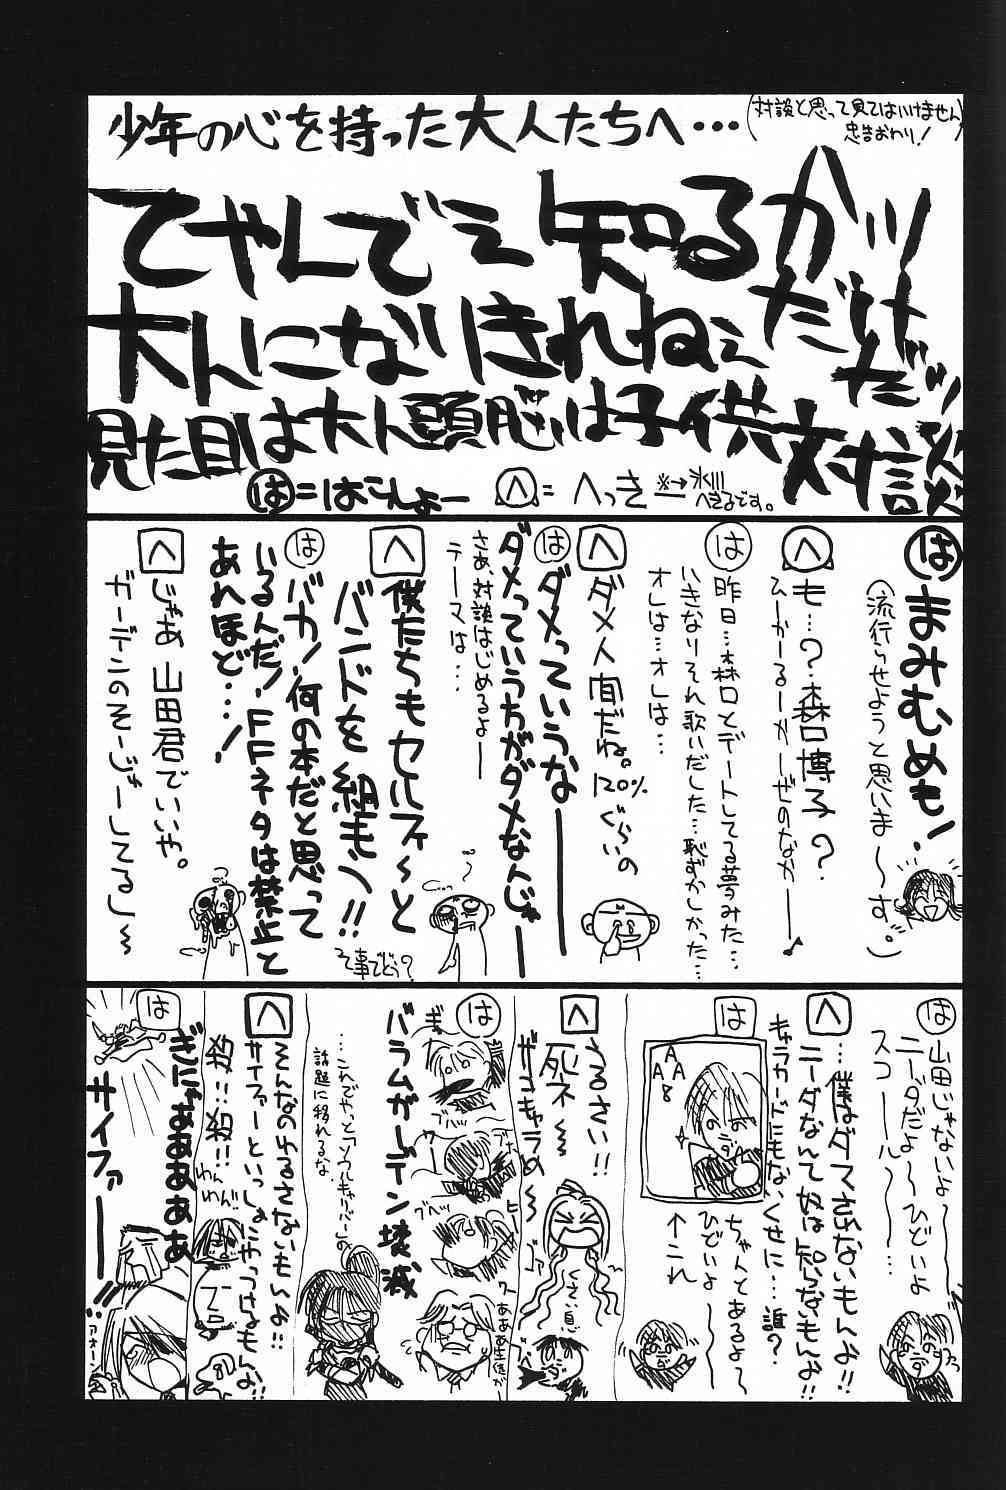 少年の心を持った大人たちへ…
(対談と思って見てはいけません
忠告おわり!)
てやんでぇ知るかッ
大人になりきれねぇ
だけだッ
見た目は大人頭脳は子供対談
は=はこんよー
へ=へっき
※→氷川
へきるです。
は まみむめも!
(流行らせようと思いま〜す。)
へ も…?森口博子?
ひーかーるーかーぜのなかー♪
は 昨日…森口とデートしてる夢みた…
いきなりそれ歌いだした…恥ずかしかった…
オレは…オレは…
へ ダメ人間だね。120%ぐらいの
は ダメっていうなーーー
ダメっていう方がダメなんじゃーー
さぁ、対談はじめるよー
テーマは…
へ 僕たちもセルフィ〜と
バンドを組もう!!
て事でどう?
は バカ!何の本だと思って
いるんだ!FFネタは禁止と
あれほど…!
へ じゃあ山田君でいいや。
ガーデンのそーじゃーしてるし〜
は 山田じゃないよ〜
ニーダだよ〜ひどいよ
スコール〜…
へ …僕はダマされないもんよ!!
ニーダなんて奴は知らないもんよ!!
キャラカードにもないくせに…誰?
は
A
A A
8
↑コレ
ちゃんとあるよ〜
ひどいよ〜
へ うるさい!!
死ネ〜
ザコキャラめ〜
は バラムガーデン壊滅
…これでやっとソウルキャリバーの
話題に移れるな
へ そんなのゆるさないもんよ!!
サイファーといっしょにやっつけるもんよ!
殺!!殺!!
わんわん
は ぎにゃあああぁぁ
サイファーーー!!
アオーン